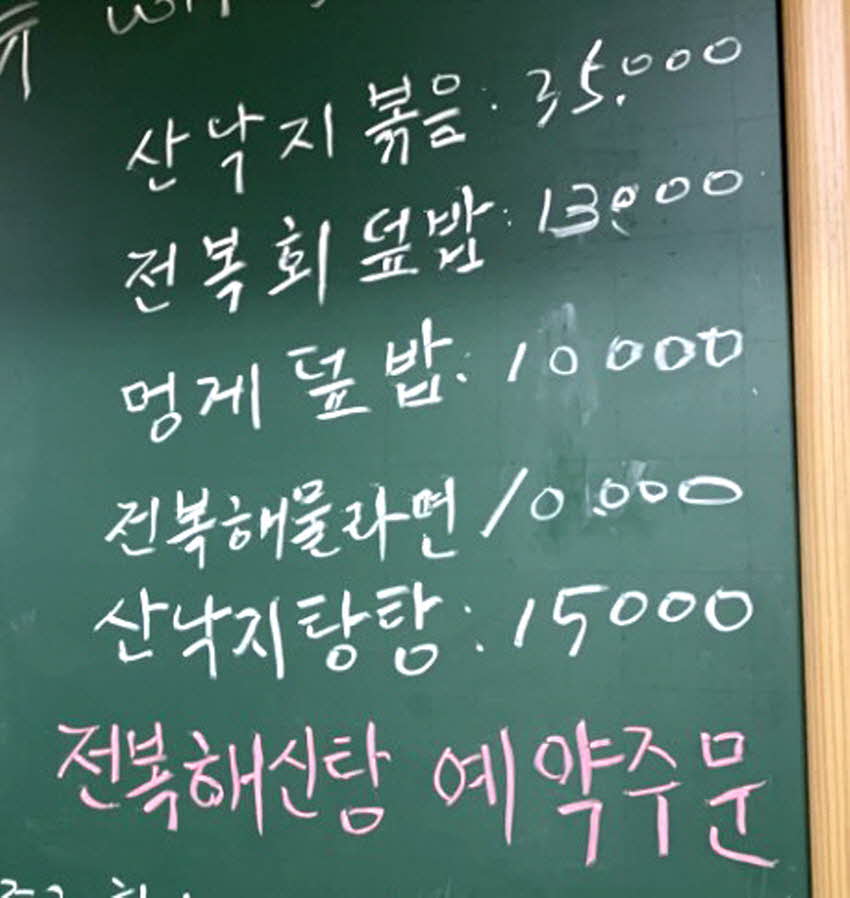 산낙지 볶음: 35,000
전복회 덮밥: 13000
멍게 덮밥: 10000
전복해물라면 10,000
산낙지탕탕: 15000
전복해신탕 예약주문